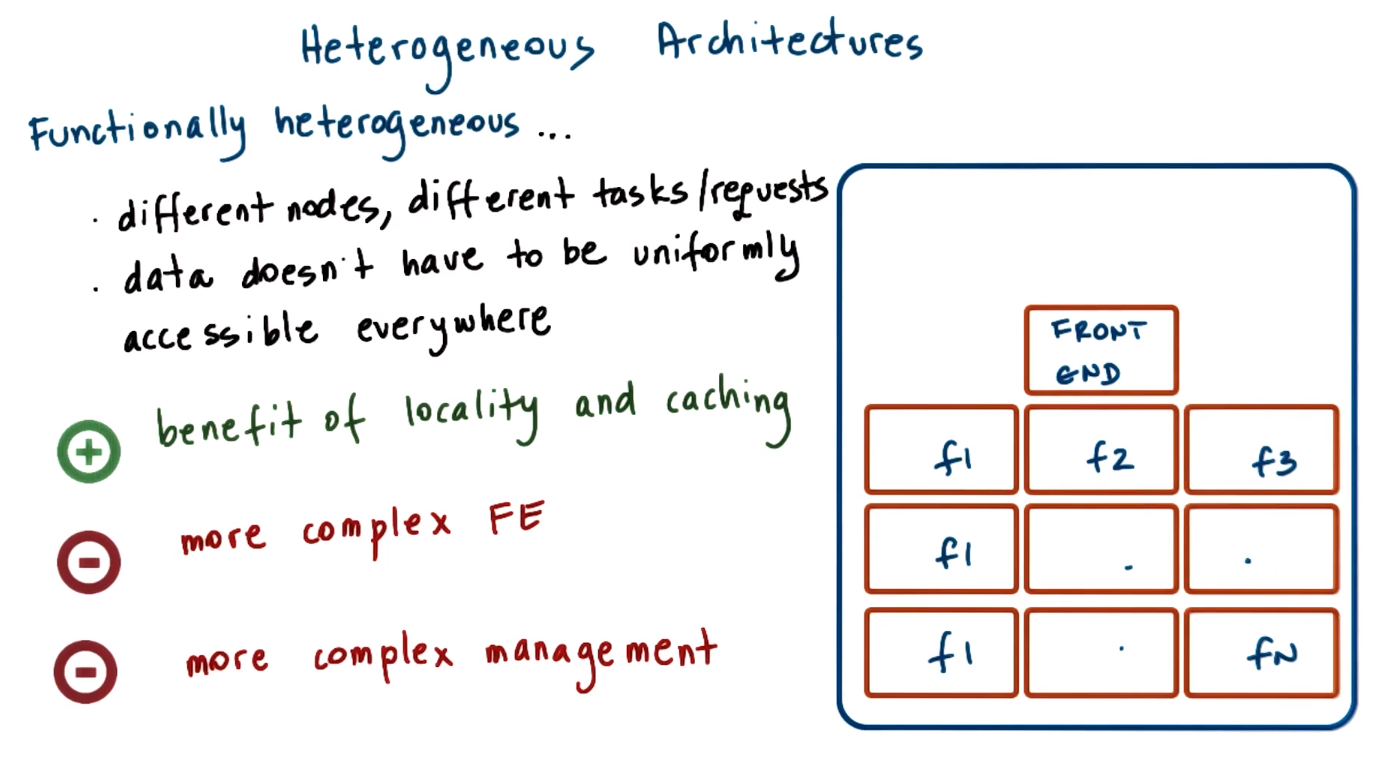 Heterogeneous Architectures
Functionally heterogeneous ...
· different nodes, different tasks/requests
· data doesn't have to be uniformly
accessible everywhere
+ benefit of locality and caching
- more complex FE
- more complex management
FRONT
END
f1 f2 f3
f1 . .
f1 . fN